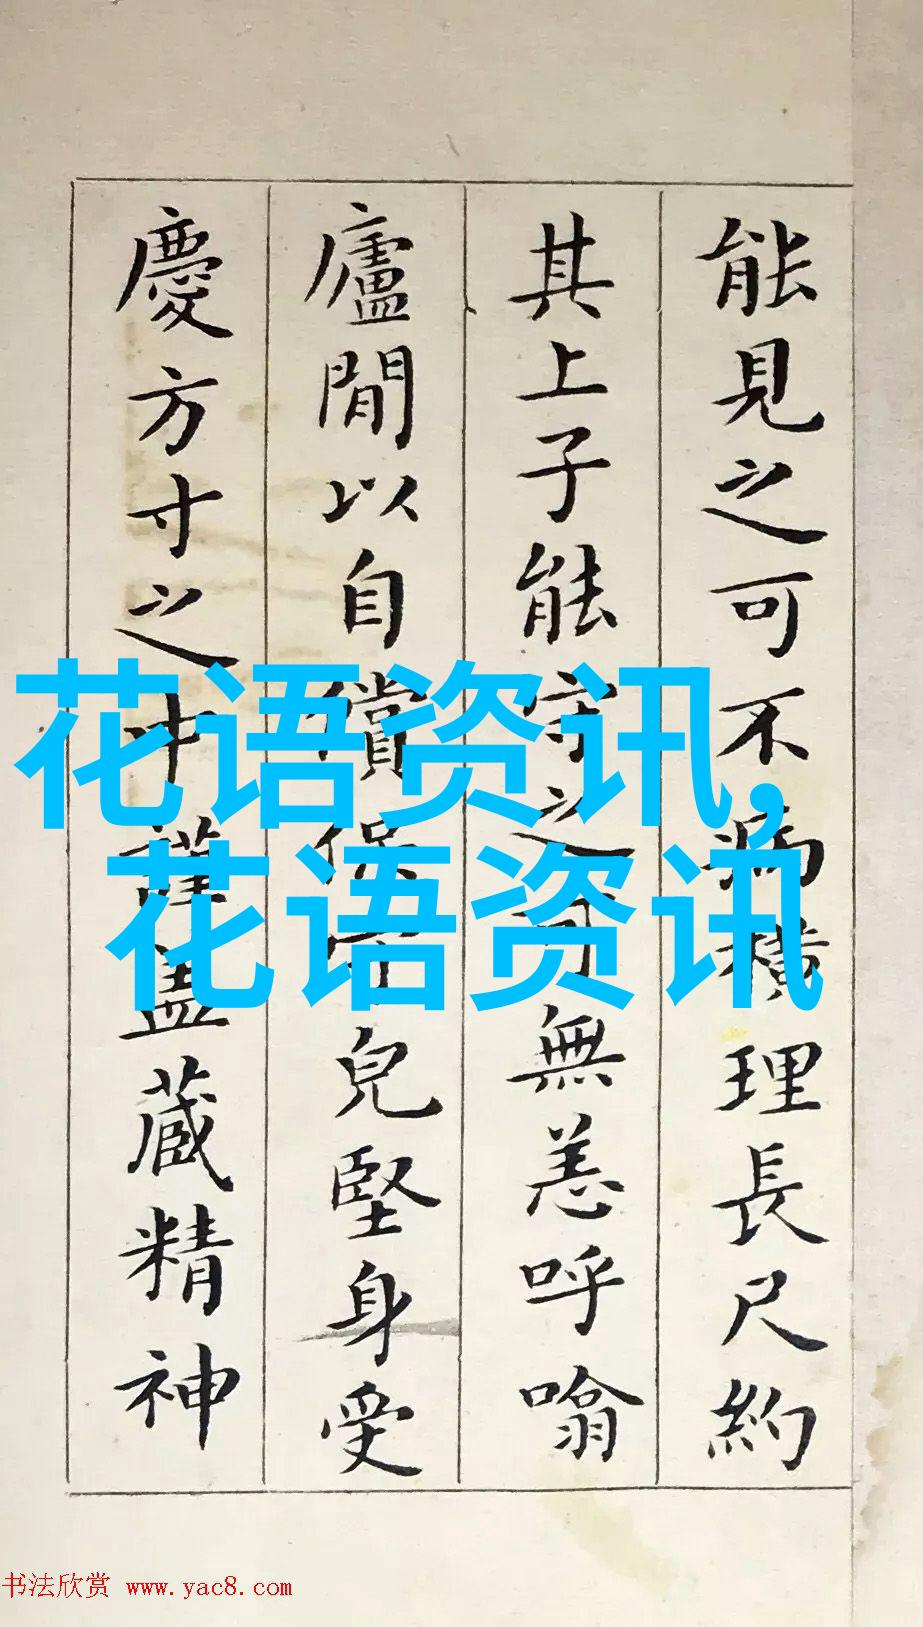 能見之可不病横理長尺約
其上子能守之可無恙呼噏
廬閒以自償保守兒堅身受
慶方寸之中謹盖藏精神
花语资讯,
花语资讯
书法欣赏 www.yac8.com